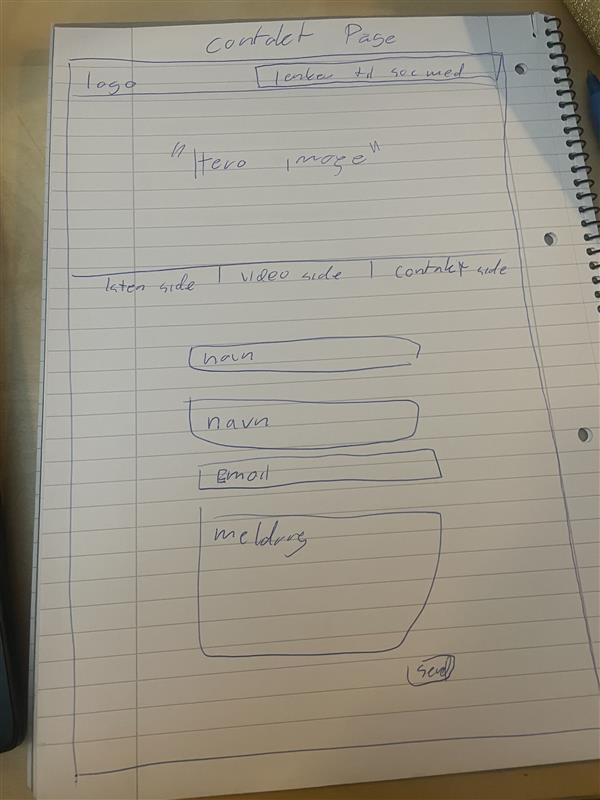 Contakt Page
logo lenker til soc med
"Hero image"
side | video side | Contakt side
navn
navn
Email
meldng
Send